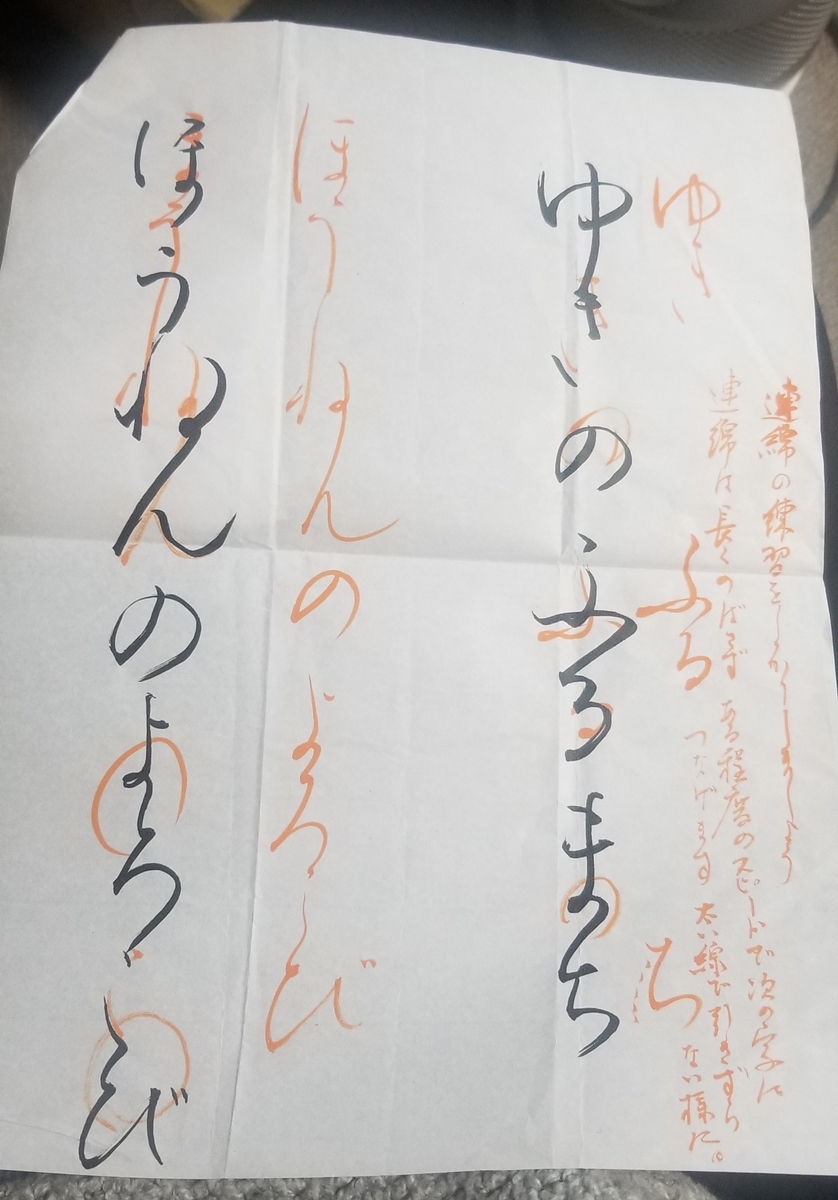 連綿の練習をしっかりしましょう
連綿は長くのばさず ある程度のスピードで次の字に
つなげます 太い線で引きずらない様に。
ゆき
ふる
ち
ゆきのふるまち
ほうねんのよろこび
ほうねんのよろこび